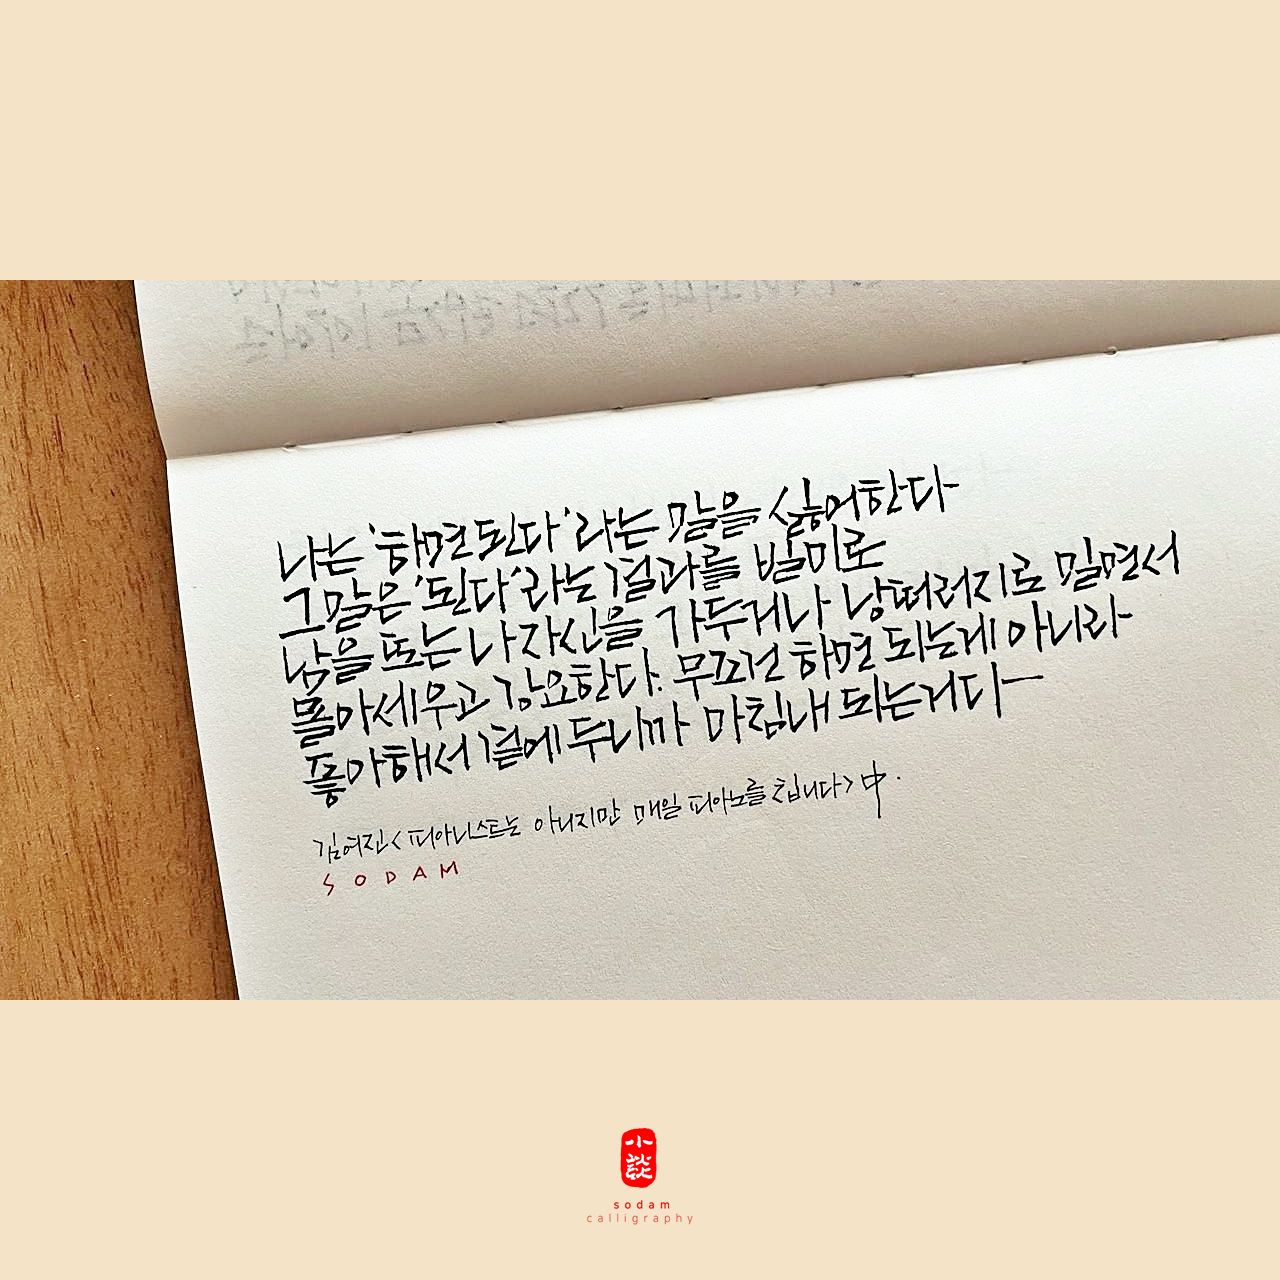 나는 '하면 된다'라는 말을 싫어한다
그 말은 '된다'라는 결과를 빌미로
남을 또는 나 자신을 가두거나 낭떠러지로 밀면서
몰아세우고 강요한다. 무조건 하면 되는게 아니라
좋아해서 곁에 두니까 마침내 되는거다
김여진 <피아니스트는 아니지만 매일 피아노를 칩니다> 中.
SODAM
小談
sodam
calligraphy